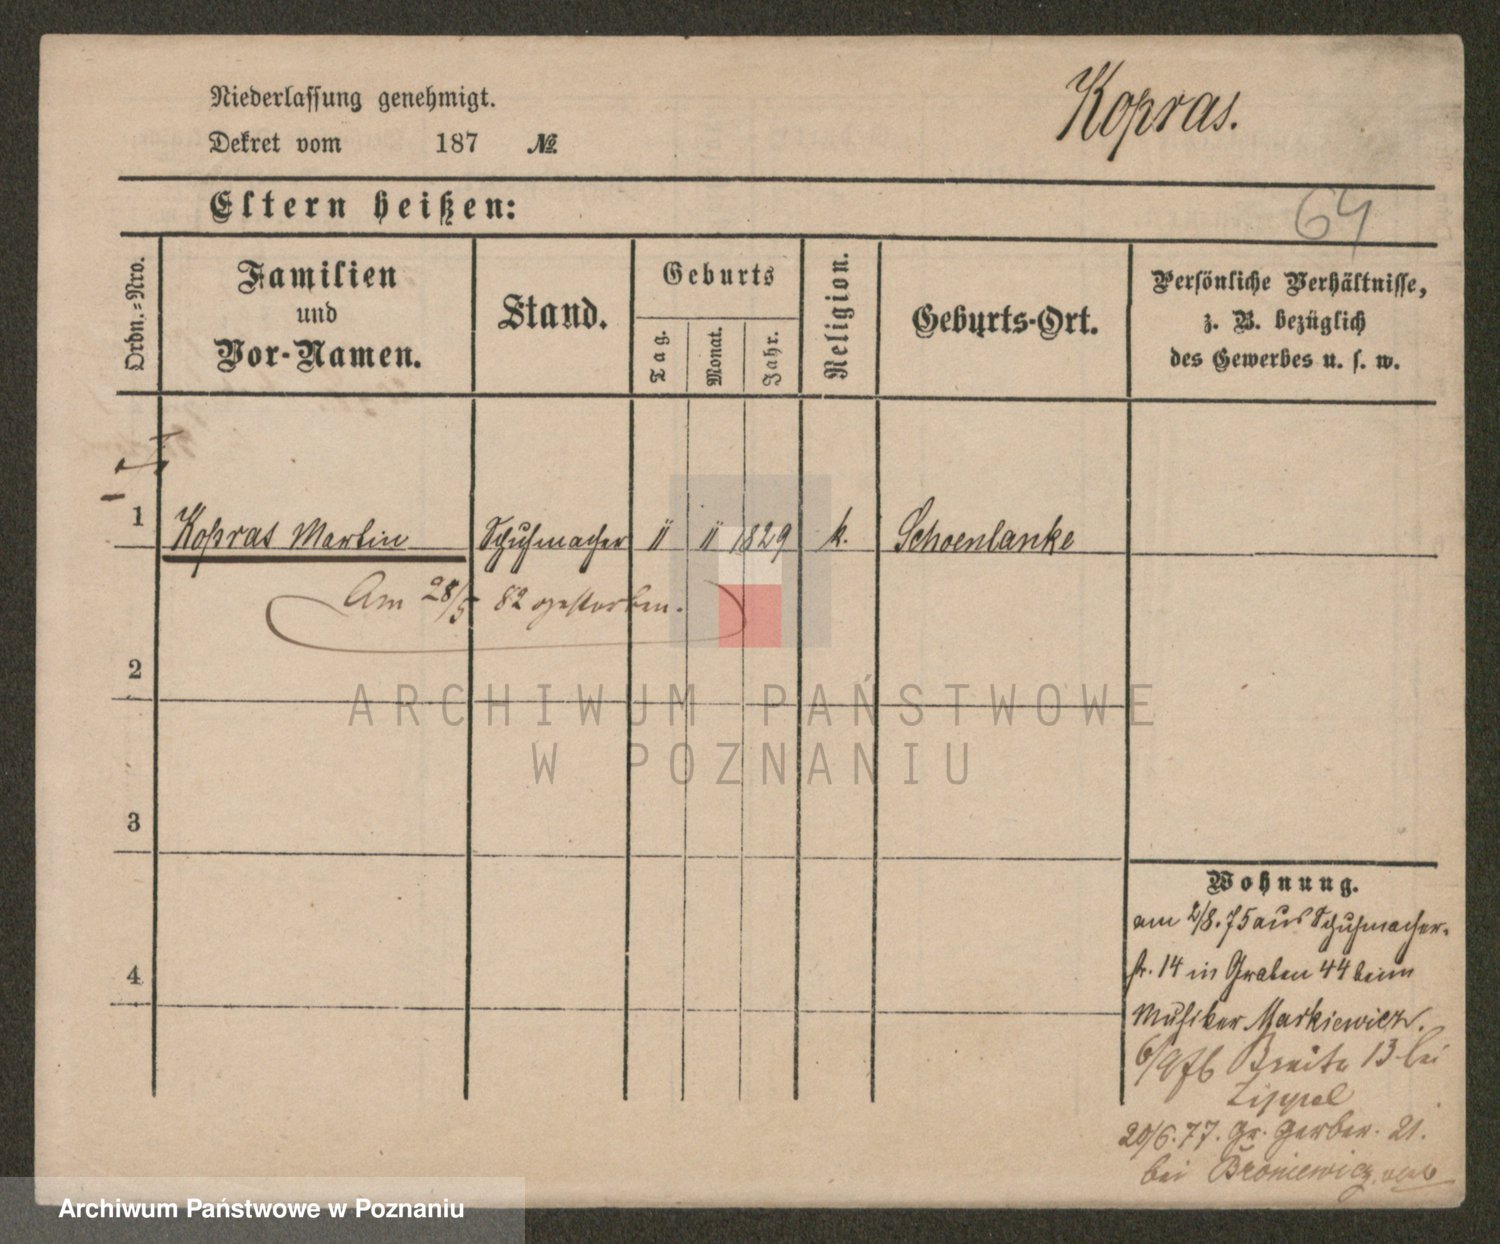 Kopras.
Niederlassung genehmigt.
Dekret vom 187 №
64
Eltern heißen:
Ordn.-Nro.
Familien
und
Vor-Namen.
Stand.
Geburts
Tag.
Monat.
Jahr.
Religion.
Geburts-Ort.
Persönliche Verhältnisse,
z. B. bezüglich
des Gewerbes u. s. w.
1 Kopras Martin Schuhmacher 11 11 1829 k. Schoenlanke
Am 28/5 82 gestorben.
2
ARCHIWUM PAŃSTWOWE
W POZNANIU
3
4
Wohnung.
am 2/8.75 aus Schuhmacher-
str. 14 in Graben 44 beim
Musiker Markiewicz.
6/9 76 Breite 13 bei
Zippel
20/6.77. Gr. Gerber. 21.
bei Broniewicz
Archiwum Państwowe w Poznaniu